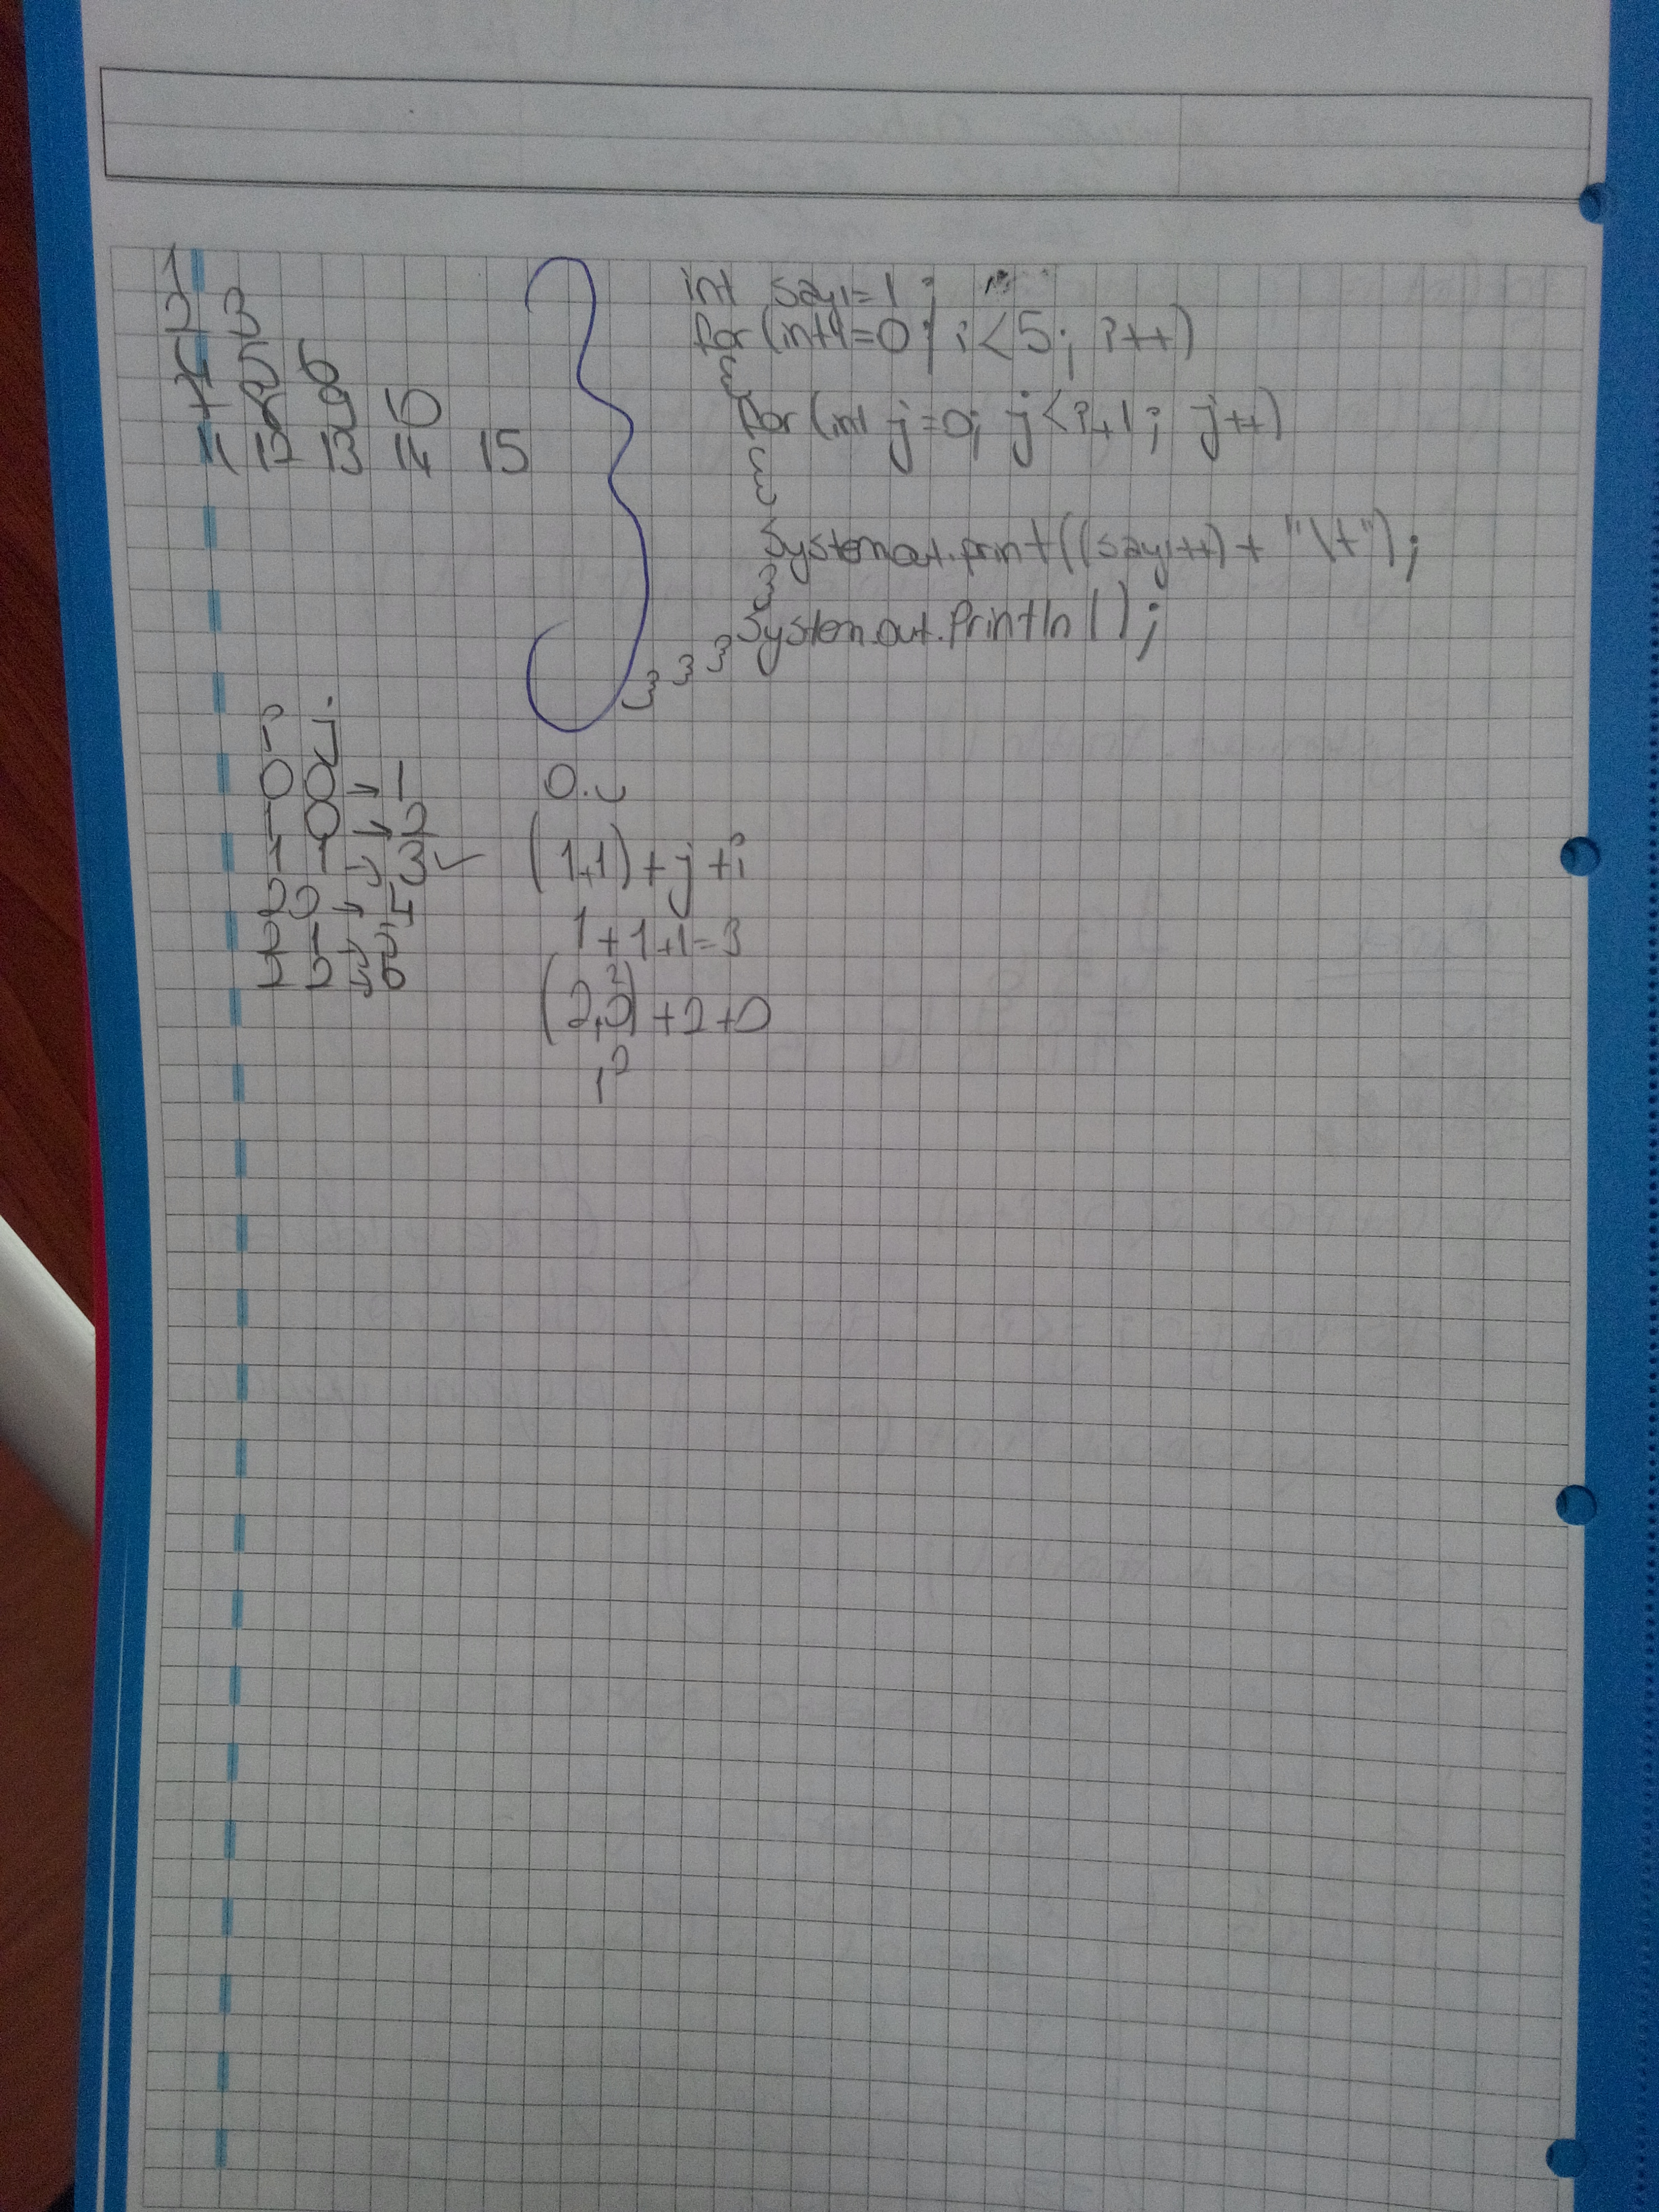 1
2 3
4 5 6
7 8 9 10
11 12 13 14 15
int sayı=1;
for(int i=0; i<5; i++)
{
for(int j=0; j<i+1; j++)
{
System.out.print((sayı++)+"\t");
}
System.out.println();
}}}
i j
0 0 → 1
1 0 → 2
1 1 → 3 ✓
2 0 → 4
2 1 → 5
2 2 → 6
(1,1)+j+i
1+1+1=3
+2+0